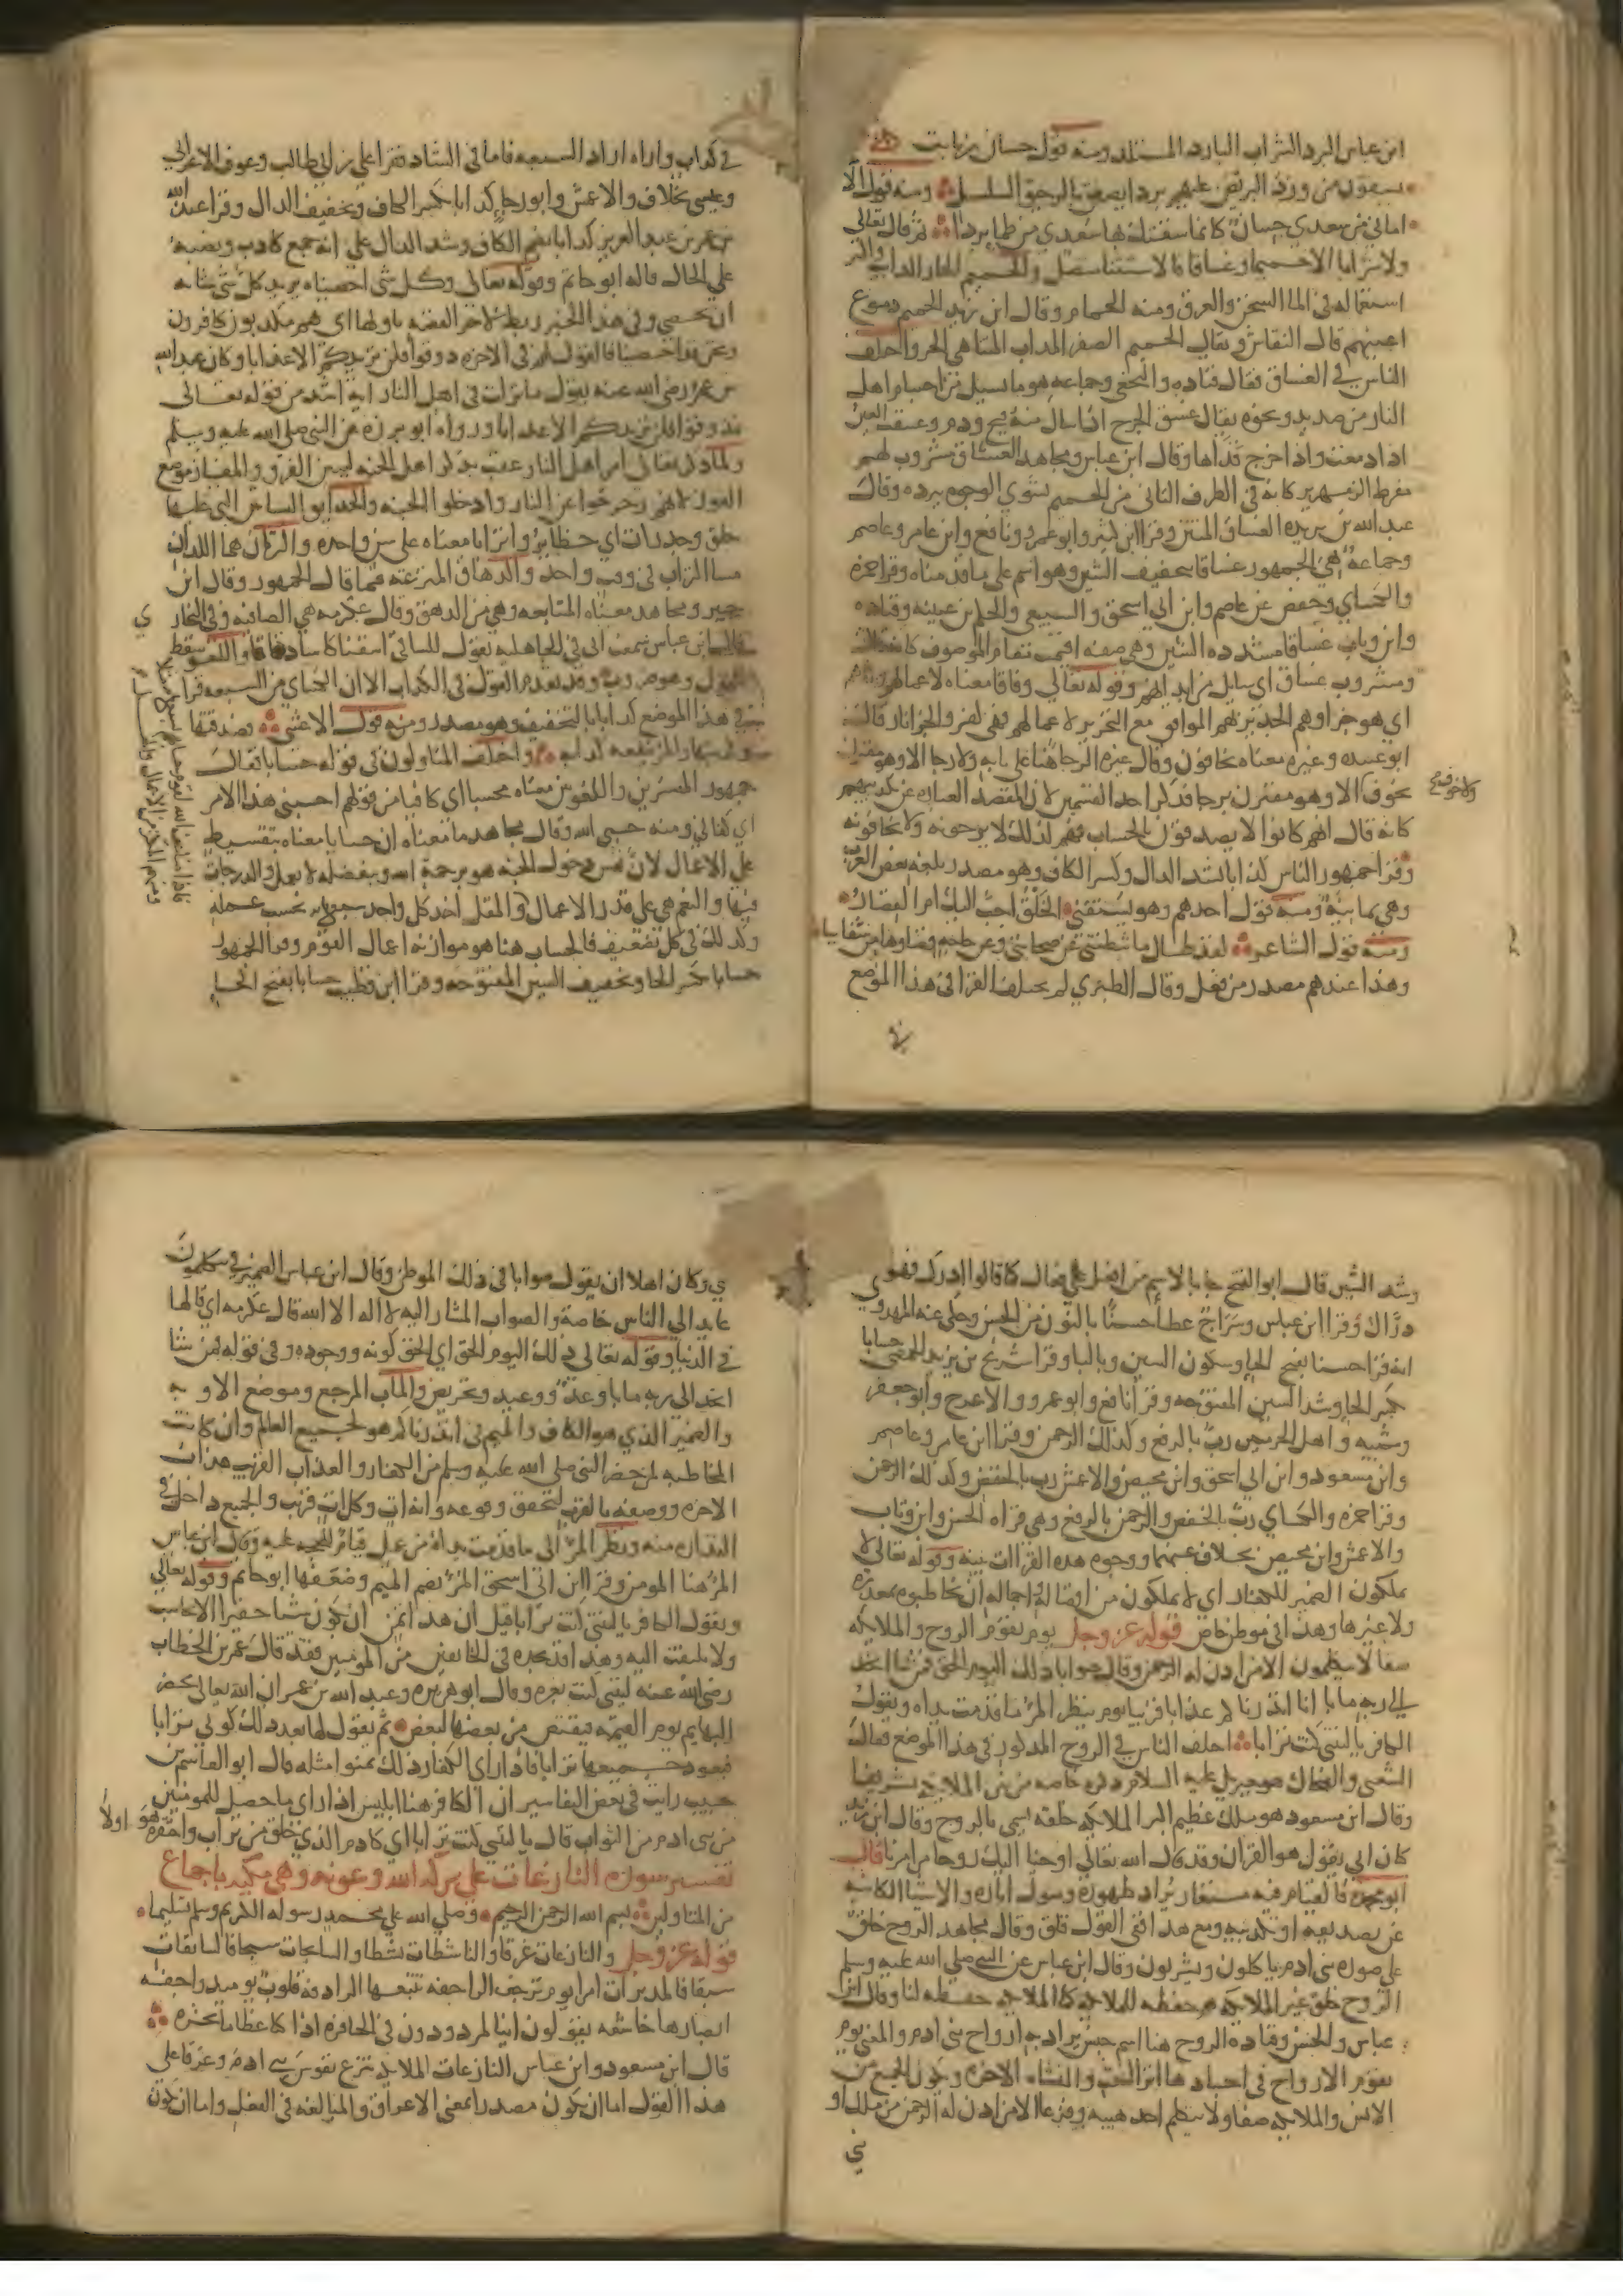 ابن عباس البرد الشراب البارد المستلذ ومنه قول حسان بن ثابت
يسقون من ورد البريص عليهم بردا يصفق بالرحيق السلسل ومنه قول الا
اماني من سعدي حسان كانما سقتك بها سعدي من ظما بردا ثم قال تعالى
ولا شرابا الا حميما وغساقا فالاستثنا متصل والحميم الحار الذايب واكثر
استعماله في الما السخن والعرق ومنه الحمام وقال ابن زيد الحميم دموع
اعينهم قال النقاش ويقال الحميم الصفر المذاب المتناهي الحر واختلف
الناس في الغساق فقال قتاده والنخعي وجماعه هو ما يسيل من اجسام اهل
النار من صديد ونحوه يقال غسق الجرح اذا سال منه قيح ودم وغسقت العين
اذا دمعت واذا خرج قذاها وقال ابن عباس ومجاهد الغساق مشروب لهم
مفرط الزمهرير كانه في الطرف الثاني من الحميم يشوي الوجوه ببرده وقال
عبد الله بن بريده الغساق المنتن وقرا ابن كثير وابو عمرو ونافع وابن عامر وعاصم
وجماعة من الجمهور غساقا بتخفيف السين وهو اسم على ما قدمناه وقرا حمزه
والكساي وحفص عن عاصم وابن ابي اسحق والسبيعي والحكم بن عيينه وقتاده
وابن وثاب غساقا مشدده السين وهي صفه اقيمت مقام الموصوف كانه قال
ومشروب غساق اي سايل من ابدانهم وقوله تعالى وفاقا معناه لاعمالهم وكفرهم
اي هو جزاوهم الجدير بهم الموافق مع التحذير لاعمالهم فهي كفر والجزا نار قال
ابو عبيده وغيره معناه يخافون وقال غيره الرجا هنا على بابه ولا رجا الا وهو مقترن
بخوف الا وهو مقترن برجا فذكر احد القسمين لان المقصد العباره عن تكذيبهم
ولا خوف
كانه قال انهم كانوا لا يصدقون بالحساب فهم لذلك لا يرجونه ولا يخافونه
وقرا جمهور الناس كذابا بشد الذال وكسر الكاف وهو مصدر بلغه بعض العرب
وهي يمانية ومنه قول احدهم وهو يستفتي الحلق احب اليك ام القصار
ومنه قول الشاعر لقد طال ما ثبطتني عن صحابتي وعن حاجه قضاوها من شفايا
وهذا عندهم مصدر من فعل وقال الطبري لم يختلف القرا في هذا الموضع
في كذاب واراه اراد السبعه فاما في الشاذ فقرا علي بن ابي طالب وعوف الاعرابي
وعيسى بخلاف والاعمش وابو رجا كذابا بكسر الكاف وتخفيف الذال وقرا عبد الله
بن عمر بن عبد العزيز كذابا بضم الكاف وشد الذال على انه جمع كاذب ونصبه
على الحال قاله ابو حاتم وقوله تعالى وكل شي احصيناه يريد كل شي شانه
ان يحصي وفي هذا الخبر ربط لاخر القصه باولها اي هم مكذبون كافرون
ونحن قد احصينا فالقول لهم في الاخره ذوقوا فلن نزيدكم الا عذابا وكان عبد الله
بن عمر رضي الله عنه يقول ما نزلت في اهل النار ايه اشد من قوله تعالى
فذوقوا فلن نزيدكم الا عذابا ورواه ابو برزه عن النبي صلى الله عليه وسلم
ولما ذكر تعالى امر اهل النار عقب بذكر اهل الجنه ليبين الفرق والمفاز موضع
الفوز لانهم زحزحوا عن النار وادخلوا الجنه والحدايق البساتين التي عليها
حلق وجدرات اي حظاير واترابا معناه على سن واحده والتربان هما اللذان
مسا التراب في وقت واحد والدهاق المترعه فيما قال الجمهور وقال ابن
جبير ومجاهد معناه المتتابعه وهي من الدهق وقال عكرمه هي الصافيه وفي البخاري
قال ابن عباس سمعت ابي في الجاهليه يقول للساقي اسقنا كاسا دهاقا واللغو سقط
القول وهو ضروب وقد تقدم القول في الكذاب الا ان الكساي من السبعه قرا
في هذا الموضع كذابا بالتخفيف وهو مصدر ومنه قول الاعشى فصدقتها
وكذبتها والمرء ينفعه كذابه واختلف المتاولون في قوله حسابا فقال
جمهور المفسرين واللغويين معناه محسبا اي كافيا من قولهم احسبني هذا الامر
اي كفاني ومنه حسبي الله وقال مجاهد ما معناه ان حسابا معناه بتقسيط
على الاعمال لان نفس دخول الجنه هو برحمة الله وبفضله لا بعمل والدرجات
فيها والنعم هي على قدر الاعمال والمقل اخذ كل واحد بحسب عمله
وكذلك في كل تضعيف فالحساب هنا هو موازنة اعمال القوم وقرا الجمهور
حسابا بكسر الحا وتخفيف السين المفتوحه وقرا ابن قطيب حسابا بفتح الحا
وشد السين قال ابو الفتح جا بالاسم من افعل على فعال كما قالوا ادرك فهو
دراك وقرا ابن عباس وسراج عطا حسنا بالنون من الحسن وحكى عنه المهدوي
انه قرا حسبا بفتح الحا وسكون السين وبالبا وقرا شريح بن يزيد الحمصي حسابا
بكسر الحا وشد السين المفتوحه وقرا نافع وابو عمرو والاعرج وابو جعفر
وشيبه واهل الحرمين رب بالرفع وكذلك الرحمن وقرا ابن عامر وعاصم
وابن مسعود وابن ابي اسحق وابن محيصن والاعمش رب بالخفض وكذلك الرحمن
وقرا حمزه والكساي رب بالخفض والرحمن بالرفع وهي قراه الحسن وابن وثاب
والاعمش وابن محيصن بخلاف عنهما ووجوه هذه القراات بينه وقوله تعالى لا
يملكون الضمير للكفار اي لا يملكون من افضاله واجماله ان يخاطبوه بمعذره
ولا غيرها وهذا في موطن خاص قوله عز وجل يوم يقوم الروح والملايكه
صفا لا يتكلمون الا من اذن له الرحمن وقال صوابا ذلك اليوم الحق فمن شا اتخذ
الى ربه مابا انا انذرناكم عذابا قريبا يوم ينظر المر ما قدمت يداه ويقول
الكافر يا ليتني كنت ترابا اختلف الناس في الروح المذكور في هذا الموضع فقال
الشعبي والضحاك هو جبريل عليه السلام ذكره خاصه من بين الملايكه تشريفا
وقال ابن مسعود هو ملك عظيم اكبر الملايكه خلقه يسمى بالروح وقال ابن زيد
كان ابي يقول هو القران وقد قال الله تعالى اوحينا اليك روحا من امرنا قال
ابو محمد فالقيام فيه مستعار يراد ظهوره ومثول اثاره والاشيا الكائنه
عن تصديقه او تكذيبه ومع هذا ففي القول قلق وقال مجاهد الروح خلق
على صوره بني ادم ياكلون ويشربون وقال ابن عباس عن النبي صلى الله عليه وسلم
الروح خلق غير الملايكه هم حفظه للملايكه كما الملايكه حفظه لنا وقال ابن
عباس والحسن وقتادة الروح هنا اسم جنس يراد به ارواح بني ادم والمعنى يوم
تقوم الارواح في اجسادها اثر البعث والنشاه الاخره ويكون الجميع من
الانس والملايكه صفا ولا يتكلم احد هيبه وفزعا الا من اذن له الرحمن من ملك او
ني
ي وكان اهلا ان يقول صوابا في ذلك الموطن وقال ابن عباس الضمير في يتكلمون
عايد الى الناس خاصة والصواب المشار اليه لا اله الا الله قال عكرمه اي قالها
في الدنيا وقوله تعالى ذلك اليوم الحق اي الحق كونه ووجوده وفي قوله فمن شا
اتخذ الى ربه مابا وعد ووعيد وتحريض والماب المرجع وموضع الاوبه
والضمير الذي هو الكاف والميم في انذرناكم هو لجميع العالم وان كانت
المخاطبه لمن حضر النبي صلى الله عليه وسلم من الكفار والعذاب القريب عذاب
الاخره ووصفه بالقرب لتحقق وقوعه وانه ات وكل ات قريب والجميع داخل في
النذاره منه ونظر المر الى ما قدمت يداه من عمل قيام الحجه عليه وقال ابن عباس
المر هنا المومن وقرا ابن ابي اسحق المر بضم الميم وضعفها ابو حاتم وقوله تعالى
ويقول الكافر يا ليتني كنت ترابا قيل ان هذا تمن ان يكون شيا حقيرا لا يحاسب
ولا يلتفت اليه وهذا قد نجده في الخايفين من المومنين فقد قال عمر بن الخطاب
رضي الله عنه ليتني كنت بعره وقال ابو هريره وعبد الله بن عمر ان الله تعالى يحضر
البهايم يوم القيمه فيقتص من بعضها لبعض ثم يقول لها بعد ذلك كوني ترابا
فيعود جميعها ترابا فاذا راى الكفار ذلك تمنوا مثله قال ابو القاسم بن
حبيب رايت في بعض التفاسير ان الكافر هنا ابليس اذا راى ما حصل للمومنين
من بني ادم من الثواب قال يا ليتني كنت ترابا اي كادم الذي خلق من تراب واحتقره هو اولا
تفسير سورة النازعات على بركة الله وعونه وهي مكية باجماع
من المتاولين بسم الله الرحمن الرحيم وصلى الله على محمد رسوله الكريم وسلم تسليما
قوله عز وجل والنازعات غرقا والناشطات نشطا والسابحات سبحا فالسابقات
سبقا فالمدبرات امرا يوم ترجف الراجفه تتبعها الرادفه قلوب يوميذ واجفه
ابصارها خاشعه يقولون اينا لمردودون في الحافره اذا كنا عظاما نخره
قال ابن مسعود وابن عباس النازعات الملايكه تنزع نفوس بني ادم وغرقا على
هذا القول اما ان يكون مصدرا بمعنى الاغراق والمبالغه في الفعل واما ان يكون